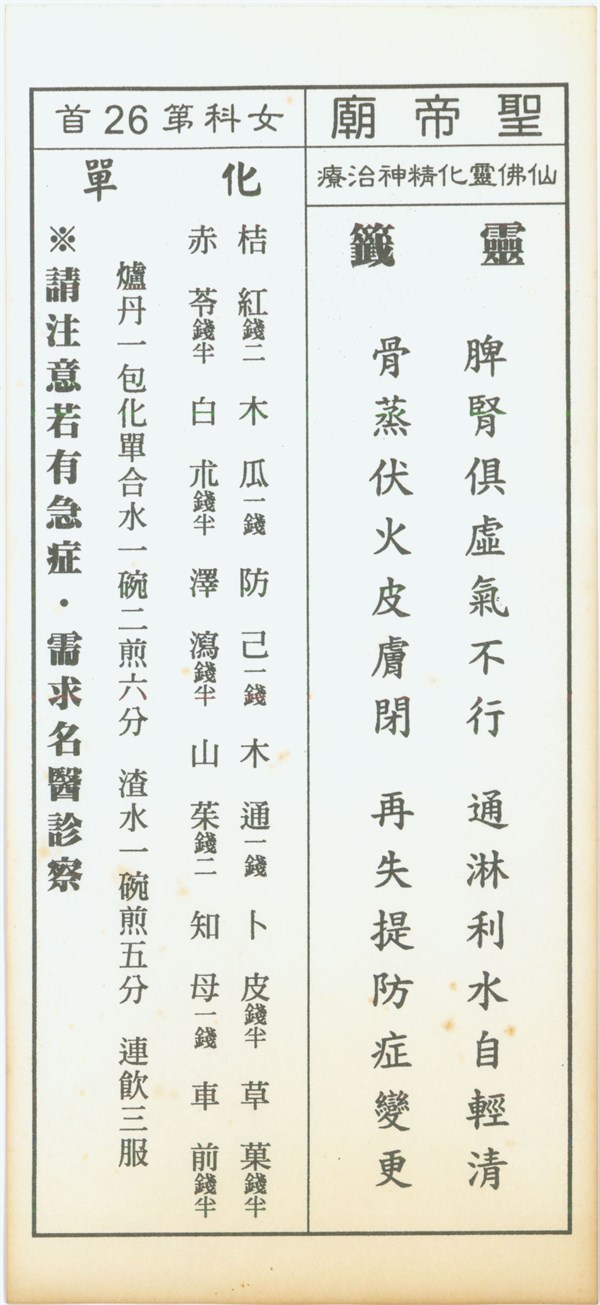 聖帝廟
仙佛靈化精神治療
靈籤
脾腎俱虛氣不行 通淋利水自輕清
骨蒸伏火皮膚閉 再失提防症變更
女科第26首
化單
桔紅錢二 木瓜一錢 防己一錢 木通一錢 卜皮錢半 草菓錢半
赤苓錢半 白朮錢半 澤瀉錢半 山茱錢二 知母一錢 車前錢半
爐丹一包化單合水一碗二煎六分 渣水一碗煎五分 連飲三服
※請注意若有急症．需求名醫診察